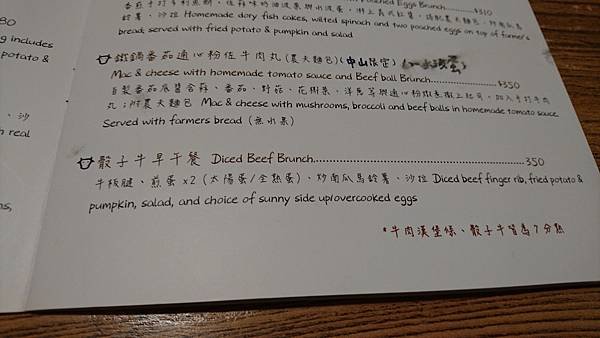 Poached Eggs Brunch..........$310
沙拉 Homemade dory fish cakes, wilted spinach and two poached eggs on top of farmer's
bread, served with fried potato & pumpkin and salad
鐵鍋番茄通心粉佐牛肉丸(農夫麵包)(中山限定)
Mac & cheese with homemade tomato sauce and Beef ball Brunch..........$350
自製番茄底醬含蒜、番茄、野菇、花椰菜、洋蔥等與通心粉
丸;附農夫麵包 Mac & cheese with mushrooms, broccoli and beef balls in homemade tomato sauce
Served with farmers bread (無水果)
骰子牛早午餐 Diced Beef Brunch..........350
牛板腱、煎蛋x2(太陽蛋/全熟蛋)、炒南瓜馬鈴薯、沙拉 Diced beef finger rib, fried potato &
pumpkin, salad, and choice of sunny side up/overcooked eggs
*牛肉漢堡條、骰子牛皆為7分熟
80
g includes
potato &
、沙
h real
ns,